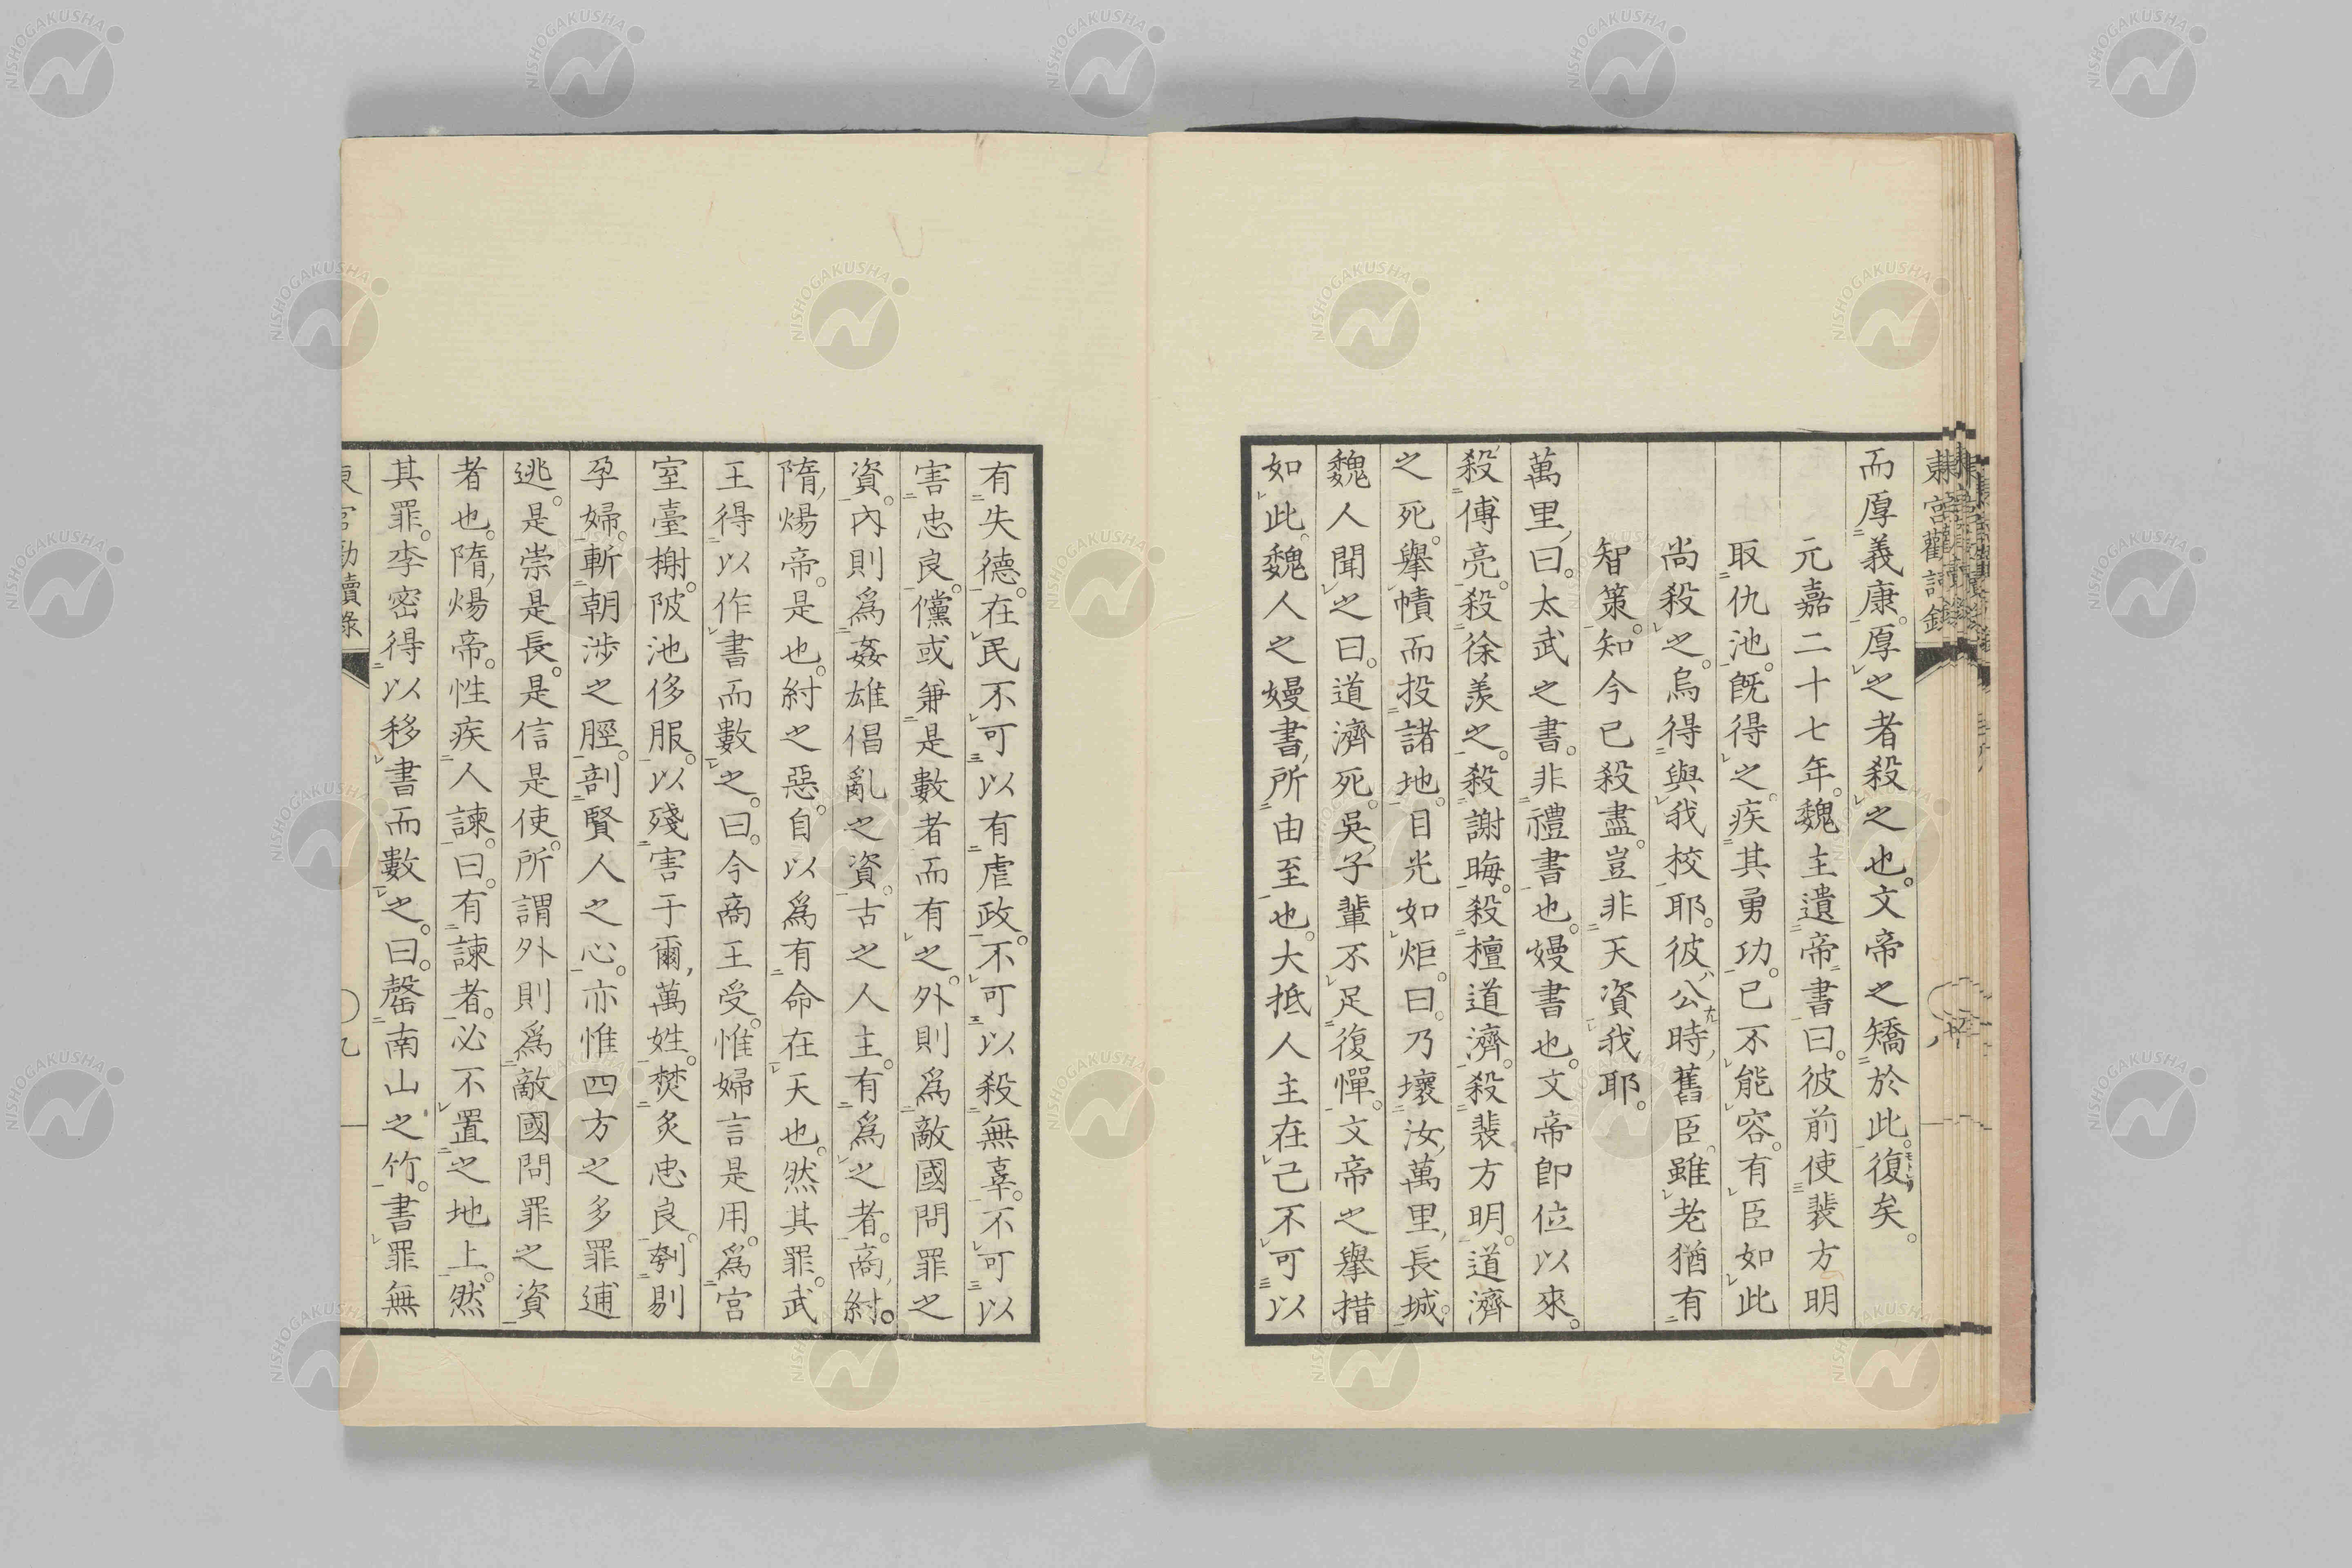 而厚義康。厚之者殺之也。文帝之矯於此。復矣。
元嘉二十七年。魏主遺帝書曰。彼前使裴方明
取仇池。既得之。疾其勇功。已不能容。有臣如此
尚殺之。烏得與我校耶。彼公時舊臣。雖老猶有
智策。知今已殺盡。豈非天資我耶。
萬里曰。太武之書。非禮書也。嫚書也。文帝卽位以來。
殺傅亮。殺徐羨之。殺謝晦。殺檀道濟。殺裴方明。道濟
之死。舉幘而投諸地。目光如炬。曰。乃壞汝萬里長城。
魏人聞之曰。道濟死。吳子輩不足復憚。文帝之舉措
如此。魏人之嫚書。所由至也。大抵人主在己不可以
有失德。在民不可以有虐政。不可以殺無辜。不可以
害忠良。儻或兼是數者而有之。外則爲敵國問罪之
資。內則爲姦雄倡亂之資。古之人主。有爲之者。商紂。
隋煬帝。是也。紂之惡。自以爲有命在天也。然其罪。武
王得以作書而數之。曰。今商王受。惟婦言是用。爲宮
室臺榭。陂池侈服。以殘害于爾萬姓。焚炙忠良。刳剔
孕婦。斬朝涉之脛。剖賢人之心。亦惟四方之多罪逋
逃。是崇是長。是信是使。所謂外則爲敵國問罪之資
者也。隋煬帝。性疾人諫。曰。有諫者。必不置之地上。然
其罪。李密得以移書而數之。曰。罄南山之竹。書罪無
NISHOGAKUSHA